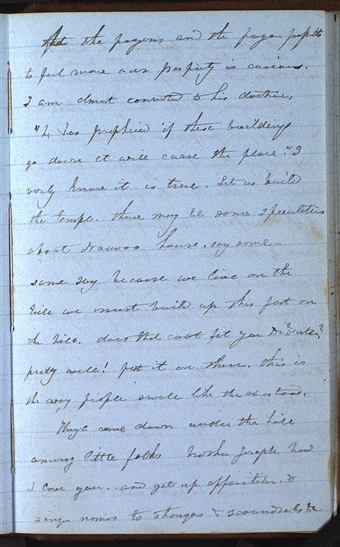 the pagans and the pagan prophets
to feel more our prosperity is curious,
I am almost converted to his doctrine,
"He has prophesied if these buildings
go down it will curse the place." I
verily know it is true. Let us build
the temple. there may be some speculations
about Nauvoo house. say some—
some say because we live on the
hill we must build up this part on
the hill. does that coat fit you Dr
pretty well! put it on then. this is
the way people swell like the ox or toad.
They'l come down under the hill
among little folks brother Joseph how
I love you. and get up opposition. &
sings names to strangers & scoundrels &c